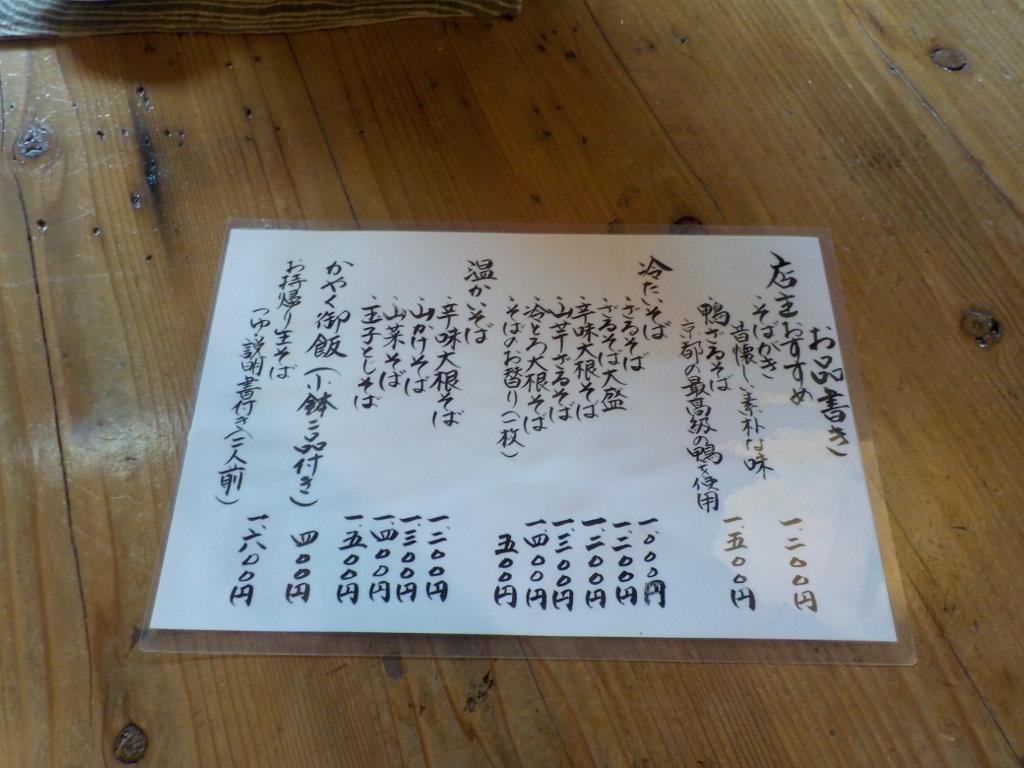 お品書き
店主おすすめ
・そばがき 一、二〇〇円
昔懐しい素朴な味
鴨ざるそば 一、五〇〇円
京都の最高級の鴨を使用
冷たいそば
・ざるそば 一、〇〇〇円
・ざるそば大盛 一、二〇〇円
・辛味大根そば 一、二〇〇円
・山芋ざるそば 一、三〇〇円
・冷とろ大根そば 一、四〇〇円
・そばのお替り(一枚) 五〇〇円
温かいそば
・辛味大根そば 一、二〇〇円
・山かけそば 一、三〇〇円
・山菜そば 一、四〇〇円
・玉子とじそば 一、五〇〇円
かやく御飯(小鉢二品付き) 四〇〇円
お持帰り生そば 一、六〇〇円
つゆ、説明書付き(二人前)